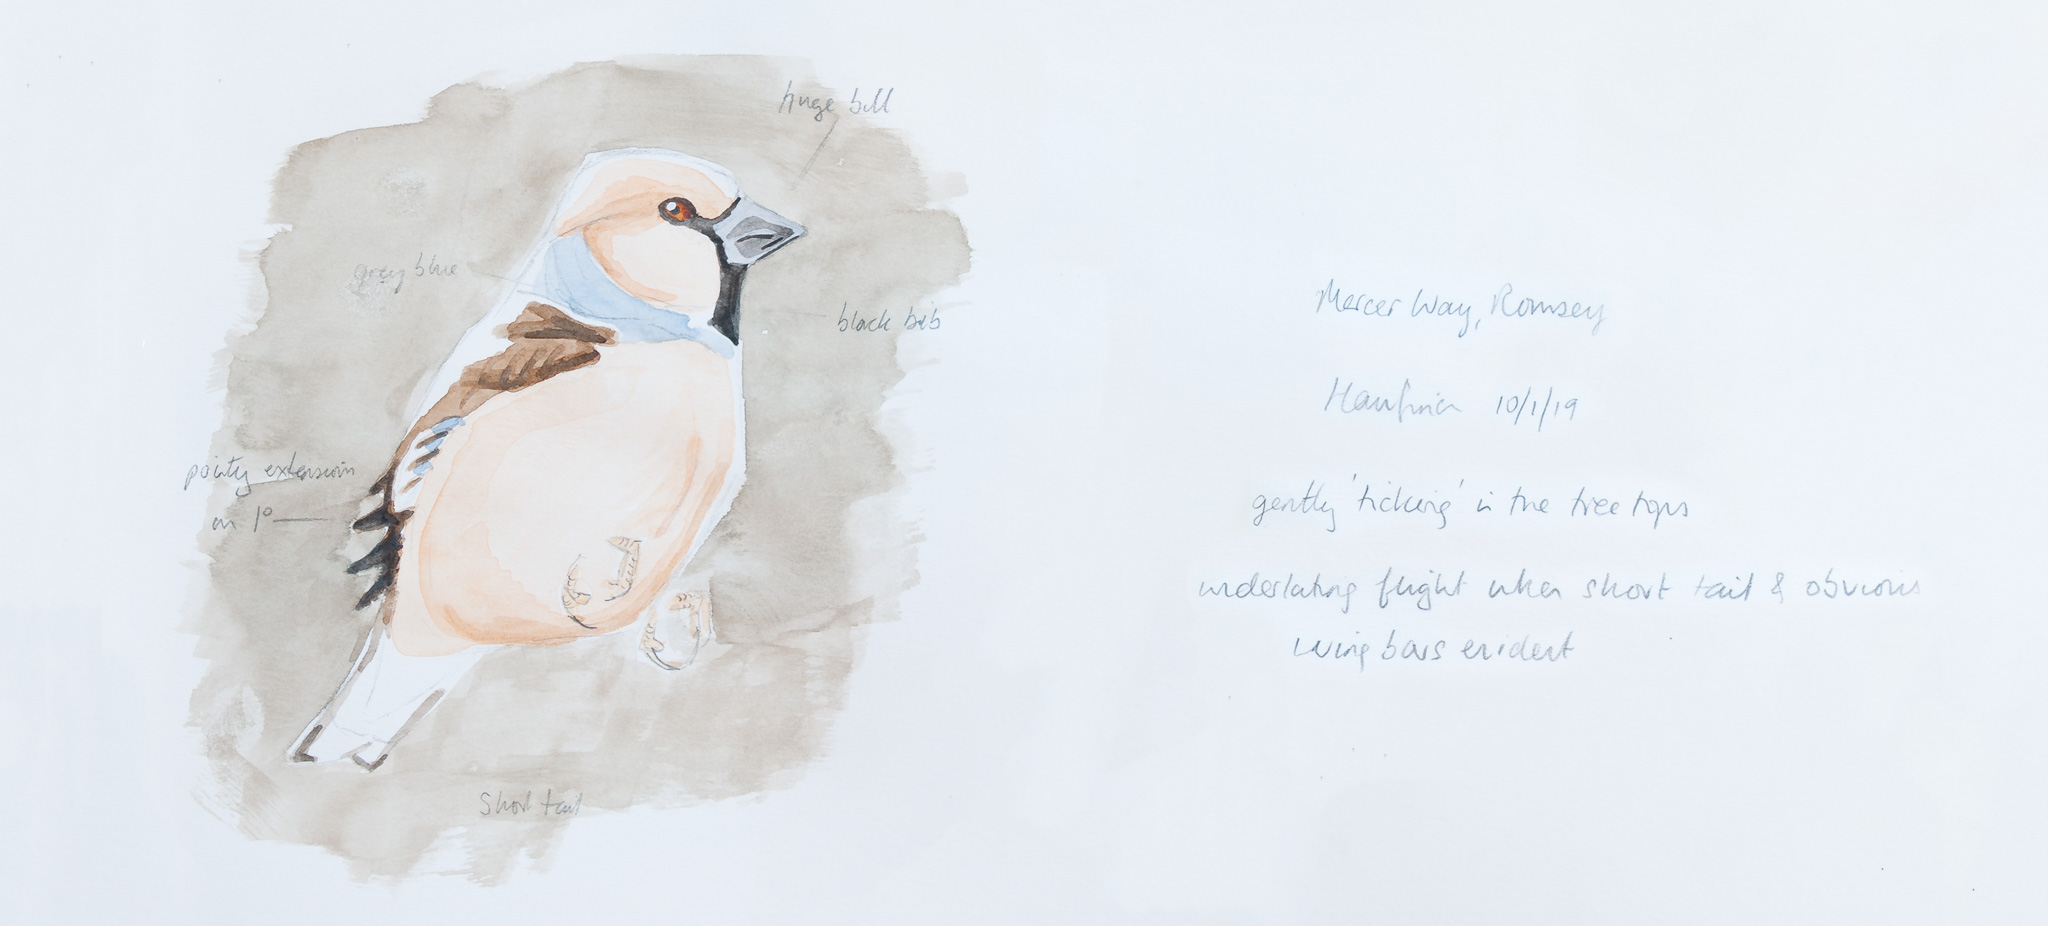 huge bill
grey blue
black bib
pointy extension
on 1º
Short tail
Mercer Way, Romsey
Hawfinch 10/1/19
gently 'ticking' in the tree tops
underlating flight when short tail & obvious
wing bars evident